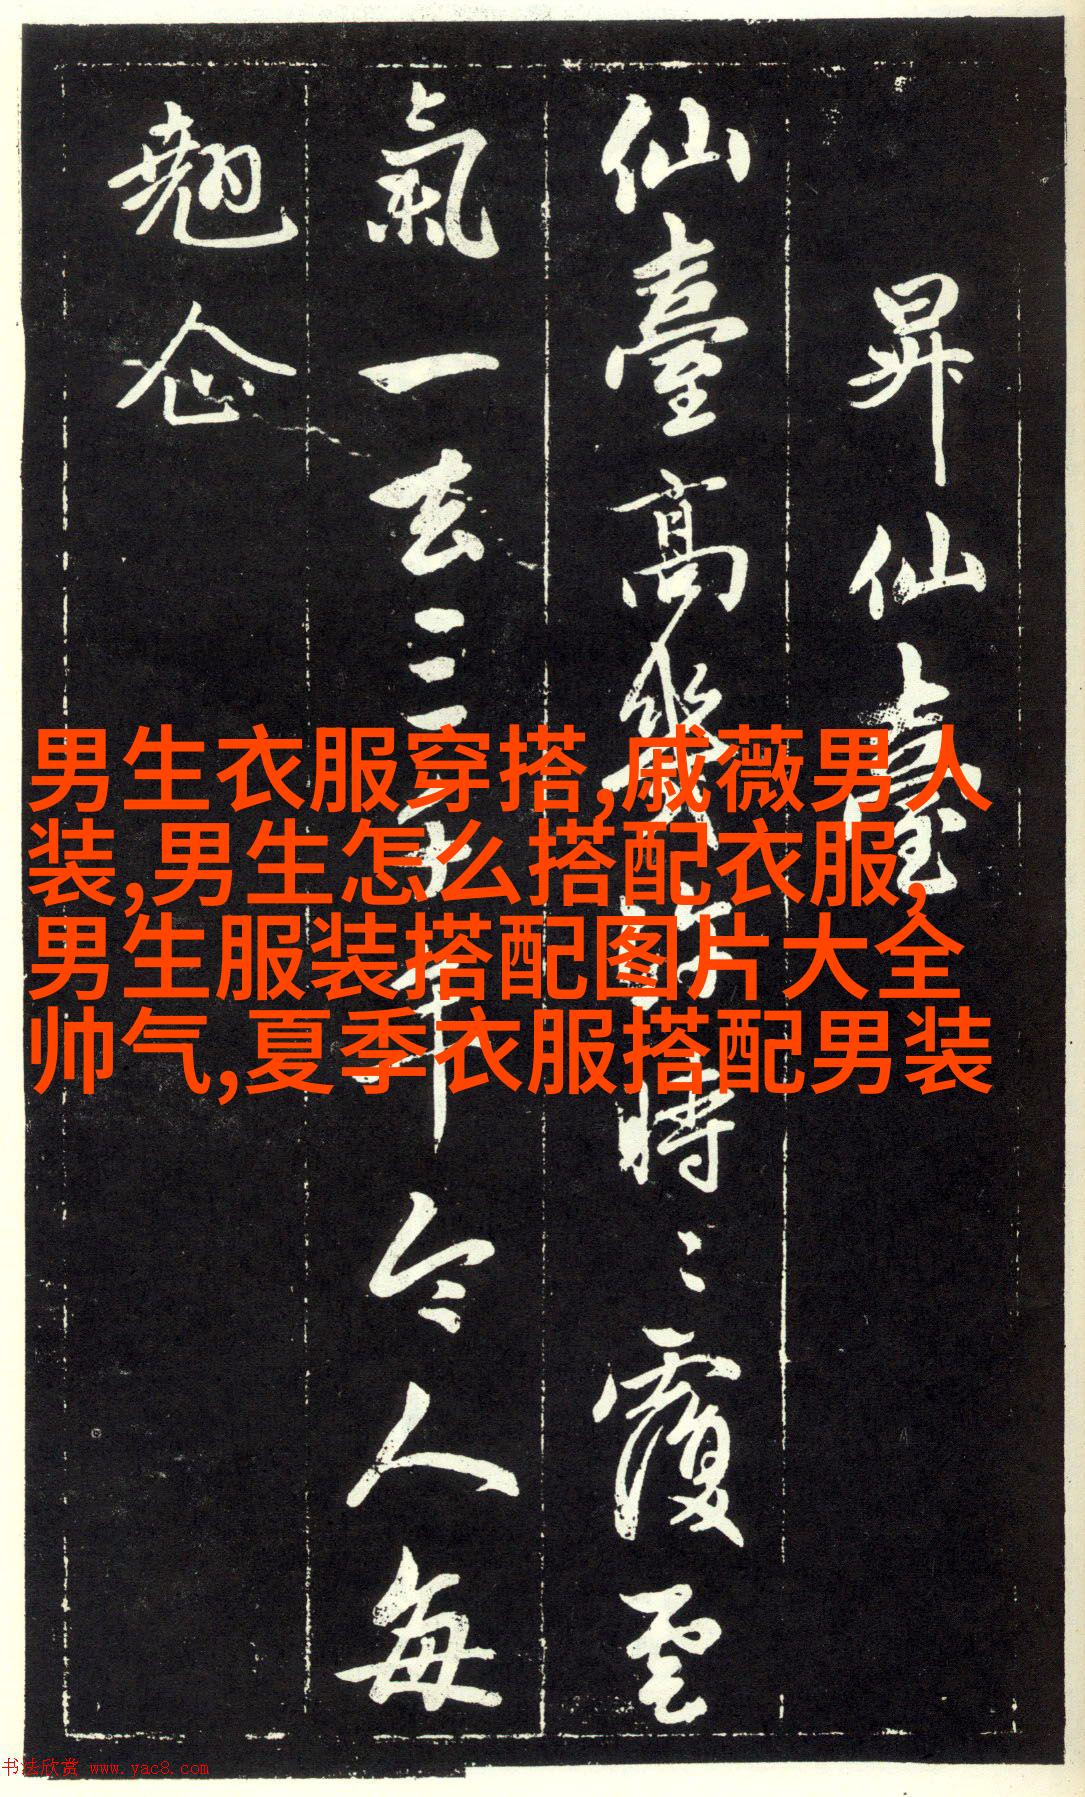 昇仙臺
仙臺高幾許時〻覆雲
氣一去三千年今人每
翹企
男生衣服穿搭,戚薇男人
装,男生怎么搭配衣服,
男生服装搭配图片大全
帅气,夏季衣服搭配男装
书法欣赏 www.yac8.com